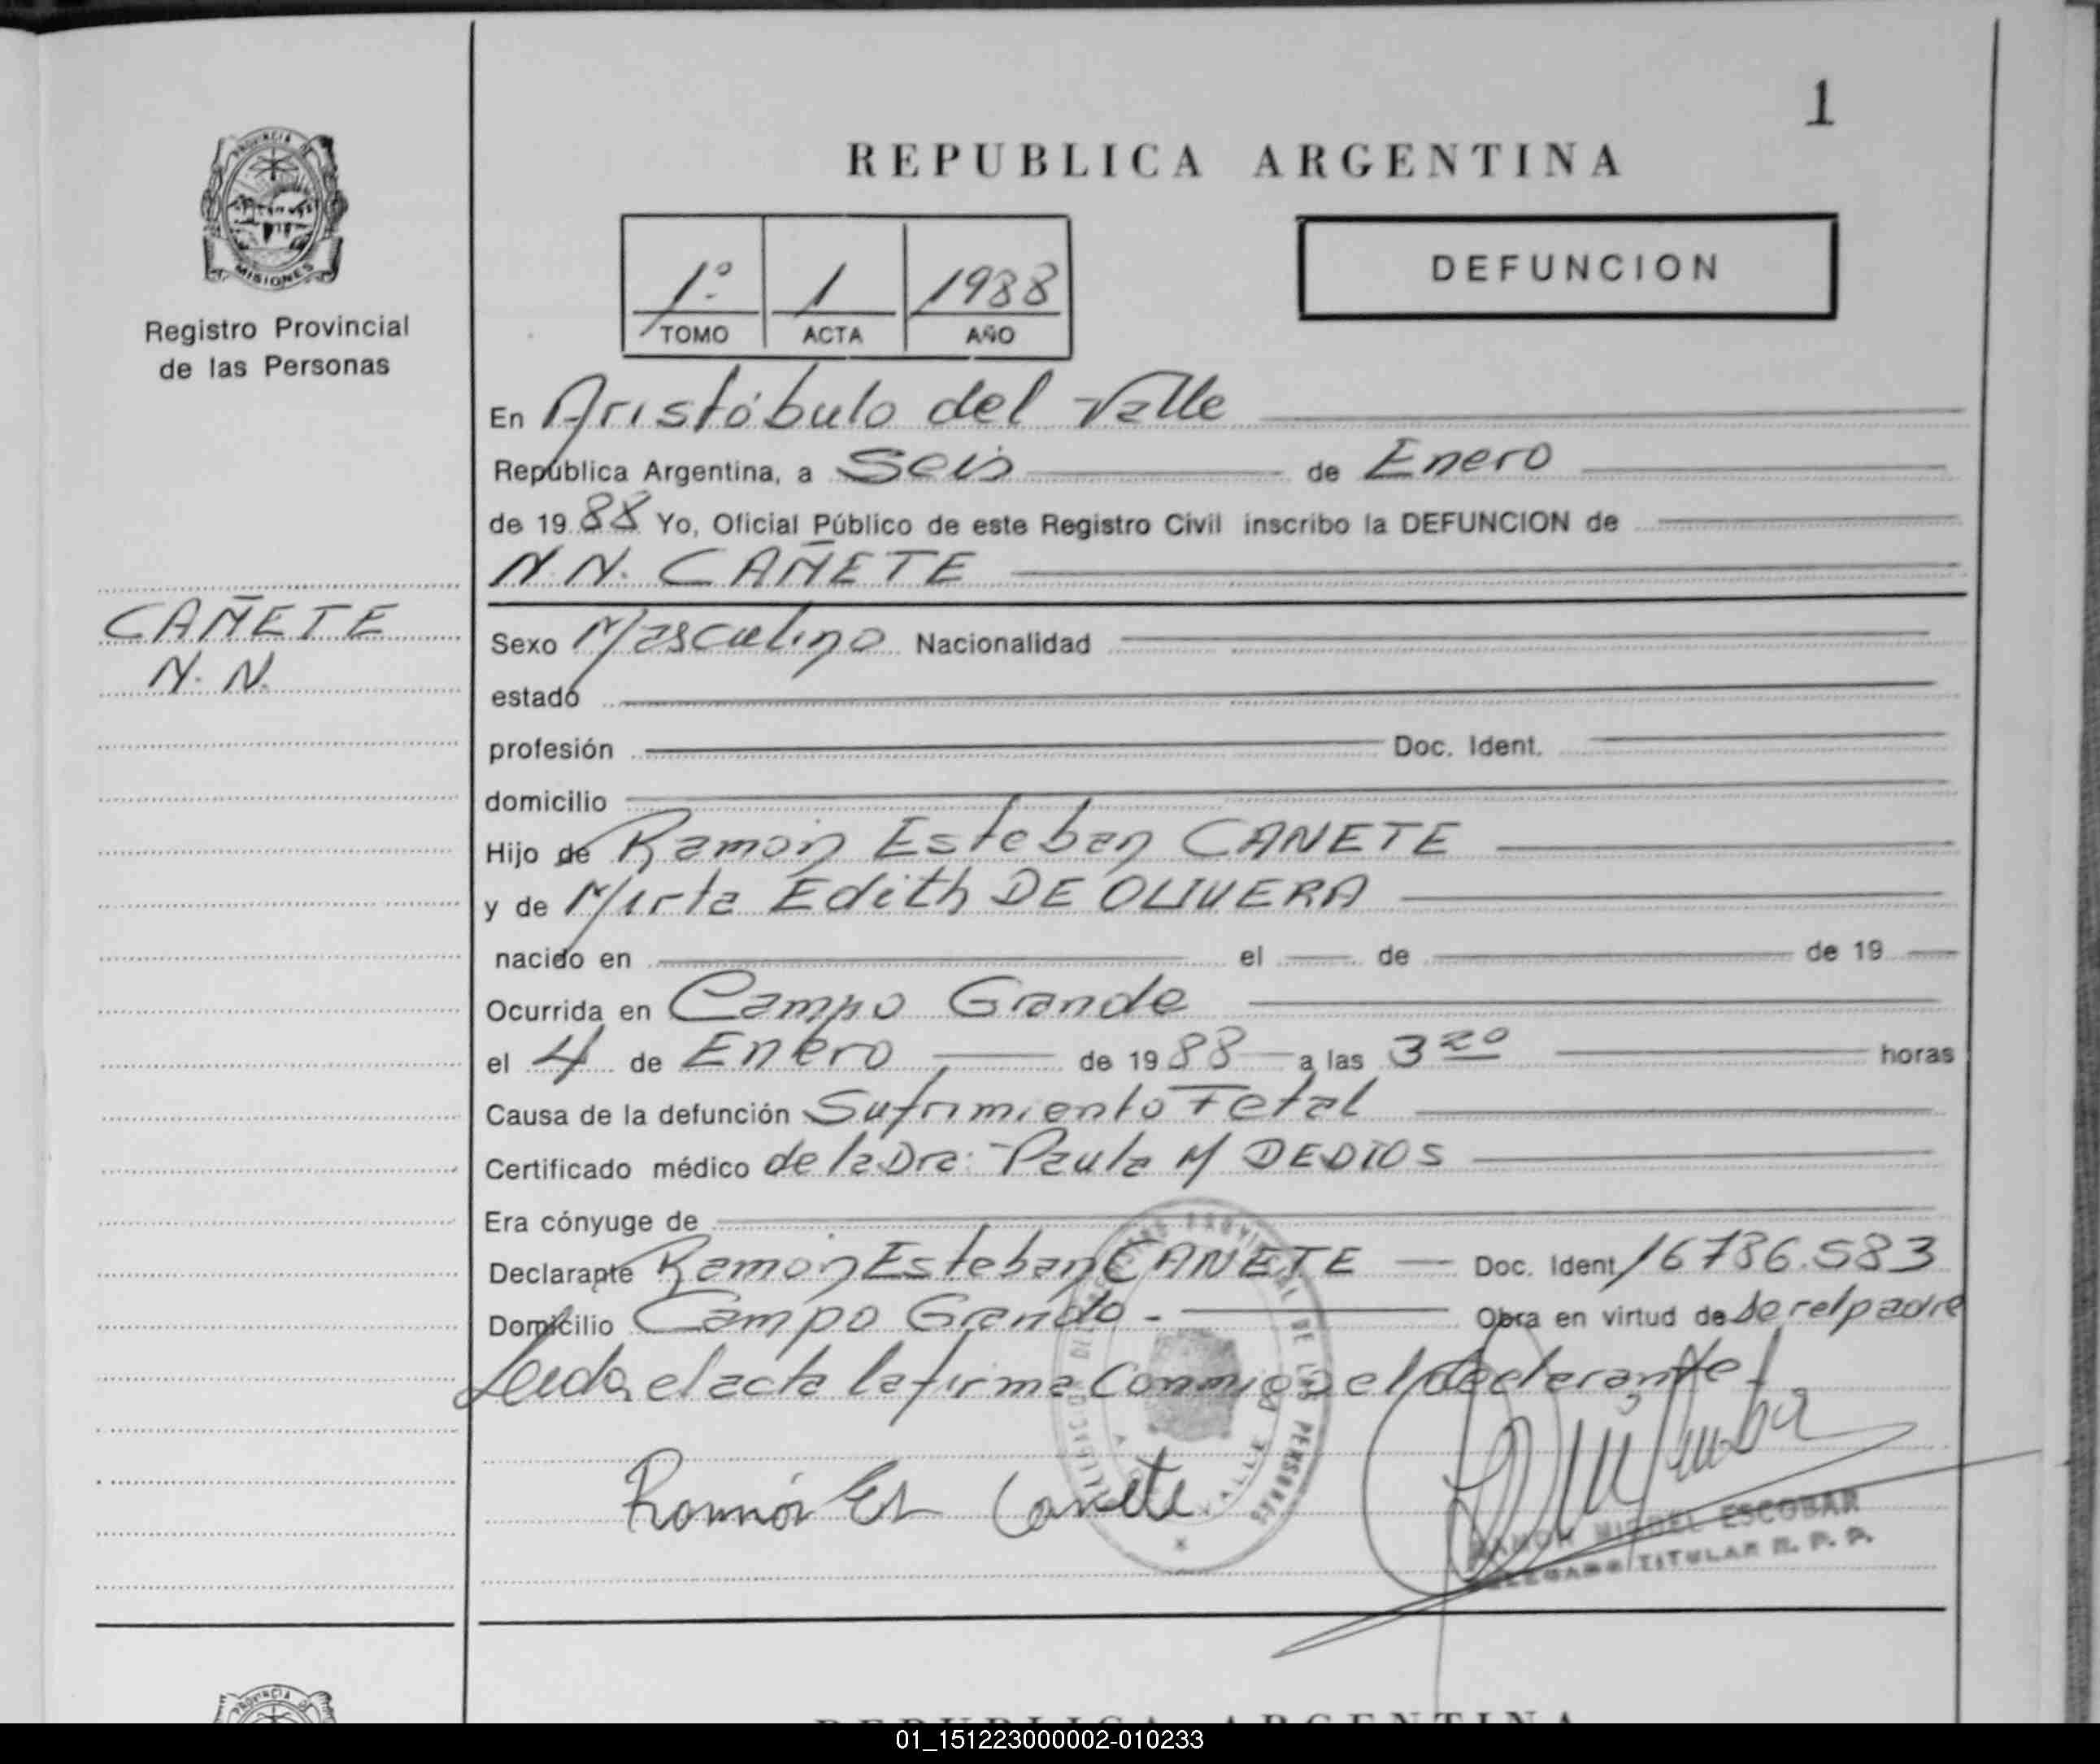 1
PROVINCIA DE
MISIONES
Registro Provincial
de las Personas
REPUBLICA ARGENTINA
1º
TOMO
1
ACTA
1988
AÑO
DEFUNCION
En Aristóbulo del Valle
República Argentina, a Seis de Enero
de 1988 Yo, Oficial Público de este Registro Civil inscribo la DEFUNCION de
N.N. CAÑETE
CAÑETE
N. N.
Sexo Masculino Nacionalidad
estado
profesión Doc. Ident.
domicilio
Hijo de Ramón Esteban CANETE
y de Mirta Edith DE OLIVERA
nacido en el de de 19
Ocurrida en Campo Grande
el 4 de Enero de 1988 a las 3 20 horas
Causa de la defunción Sufrimiento Fetal
Certificado médico de la Dra. Paula M DEDIOS
Era cónyuge de
Declarante Ramón Esteban CANETE Doc. Ident 16786.583
Domicilio Campo Grande - Obra en virtud de ser el padre
Leida el acta la firma Conmigo el declarante
Ramón Es Canete
RAMON MIGUEL ESCOBAR
DELEGADO TITULAR R. P. P.
PROVINCIA DE
REPUBLICA ARGENTINA
01_151223000002-010233